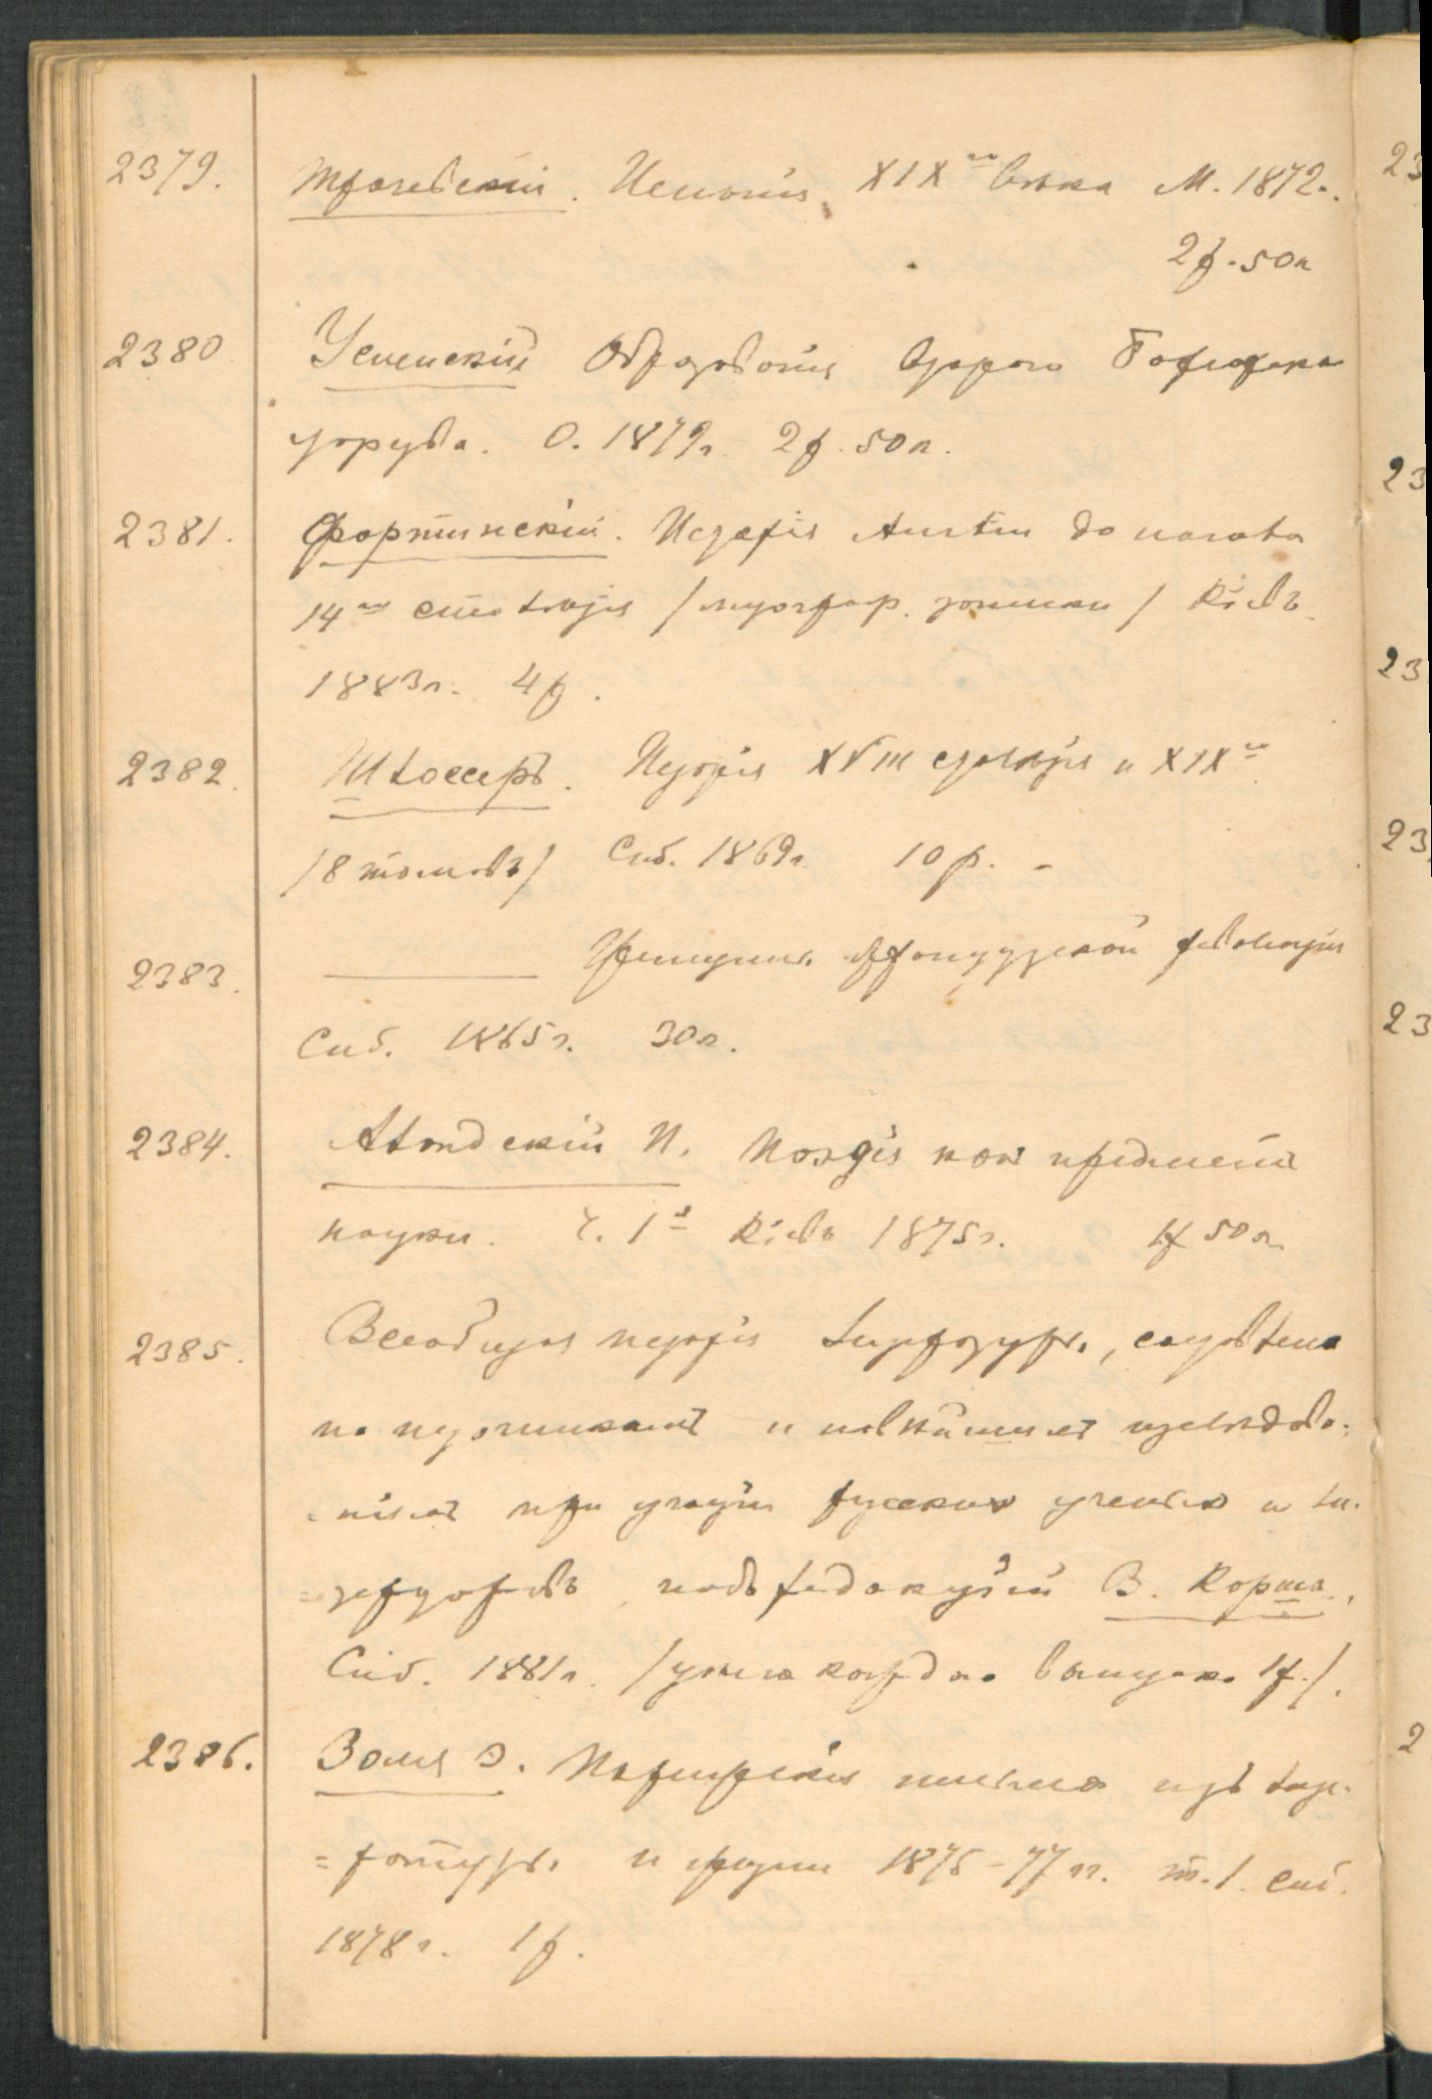 2379. Трачевскій. Испанія XIX го вѣка М. 1872.
2р. 50к
2380 Успенскій Образованія второго Болгарска
царства. О. 1879г. 2р. 50к.
2381. Фортинскій. Исторія Англіи до начала
14 го столѣтія /литограф. записки/ Кіевъ.
1883г. 4р.
2382. Шлоссеръ. Исторія XVIII столѣтія и XIX го
/8 томовъ/ Спб. 1869г. 10р. -
2383. ——— французской революціи
Спб. 1865г. 30к.
2384. Аландскій П. Поэзія какъ предметъ
науки. Ч. 1я Кіевъ 1875г. 1р 50к
2385. Всеобщая исторія литературы, составлена
по источникамъ и новѣйшимъ изслѣдова-
=ніямъ при участіи русскихъ ученыхъ и ли-
=тераторовъ подъ редакціей В. Корша.
Спб. 1881г. /цѣна каждаго выпуска 1р./.
2386. Золя Э. Парижскія письма изъ лите-
=ратуры и жизни 1875-77 гг. т. 1. Спб.
1878г. 1р.
23
23
23
23
23
2